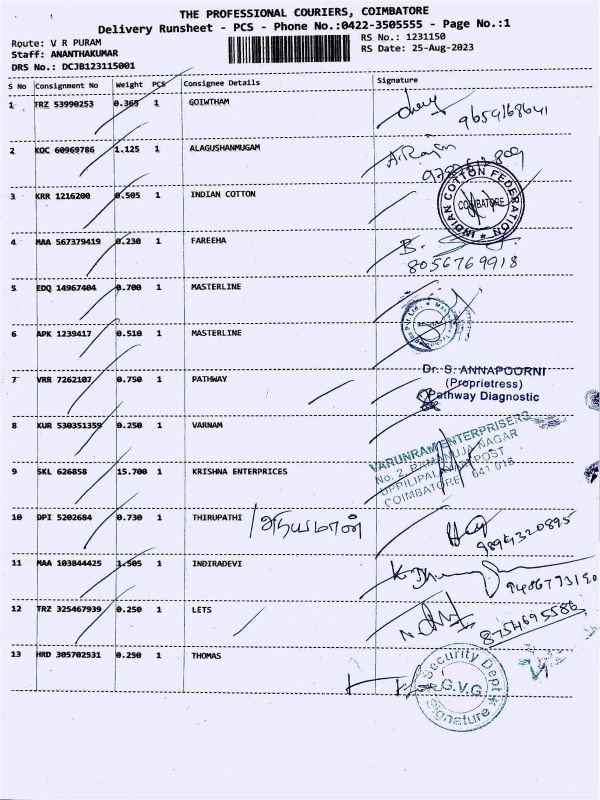 THE PROFESSIONAL COURIERS, COIMBATORE
Delivery Runsheet - PCS - Phone No.:0422-3505555 - Page No.:1
Route: V R PURAM
RS No.: 1231150
Staff: ANANTHAKUMAR
RS Date: 25-Aug-2023
DRS No.: DCJB123115001
S No Consignment No Weight PCS Consignee Details Signature
1 TRZ 53990253 0.365 1 GOIWTHAM
9659168641
2 KOC 60969786 1.125 1 ALAGUSHANMUGAM
A. Rajan
3 KRR 1216200 0.505 1 INDIAN COTTON
INDIAN COTTON FEDERATION
COIMBATORE
4 MAA 567379419 0.230 1 FAREEHA
B.
8056769918
5 EDQ 14967404 0.700 1 MASTERLINE
6 APK 1239417 0.510 1 MASTERLINE
7 VRR 7262107 0.750 1 PATHWAY
Dr. S. ANNAPOORNI
(Proprietress)
Pathway Diagnostic
8 KUR 530351359 0.250 1 VARNAM
VARUNRAM ENTERPRISERS
No. 2, RAMANUJA NAGAR
UPPILIPALAYAM POST
COIMBATORE - 641 015
9 SKL 626858 15.700 1 KRISHNA ENTERPRICES
10 DPI 5202684 0.730 1 THIRUPATHI
9894320895
11 MAA 103844425 1.505 1 INDIRADEVI
9486773190
12 TRZ 325467939 0.250 1 LETS
8754695586
13 HRD 305702531 0.250 1 THOMAS
Security Dept
G.V.G
Signature